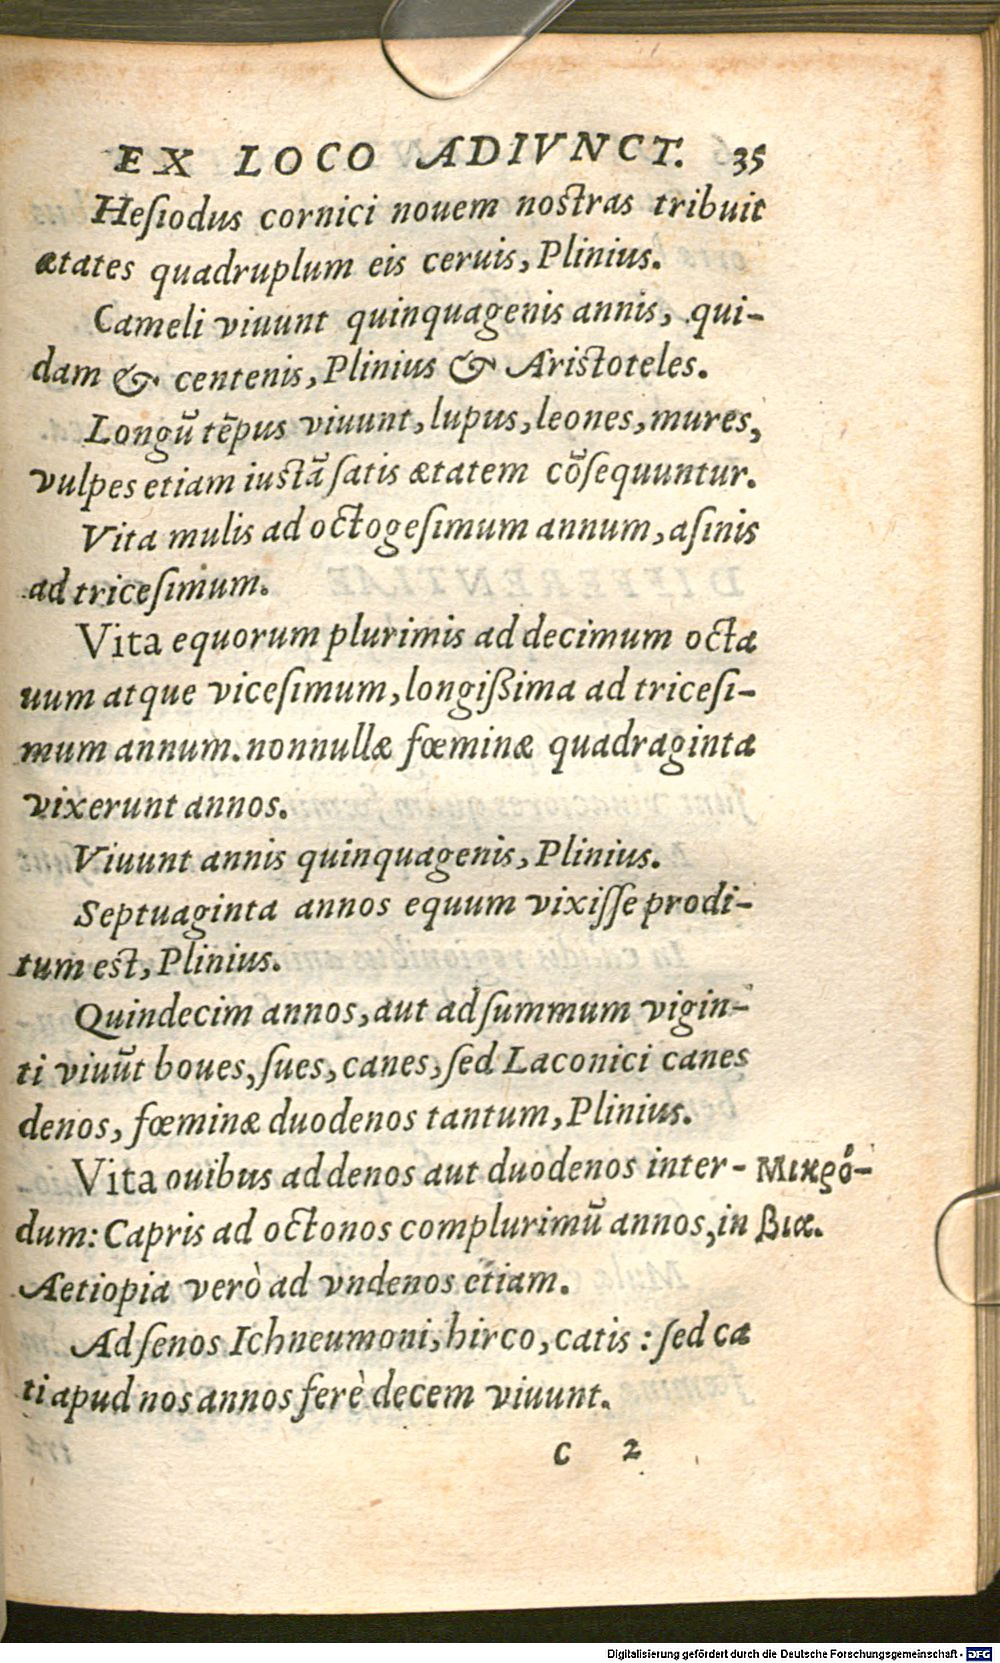 EX LOCO ADIVNCT. 35
Hesiodus cornici nouem nostras tribuit
ætates quadruplum eis ceruis, Plinius.
Cameli viuunt quinquagenis annis, qui-
dam & centenis, Plinius & Aristoteles.
Longū tēpus viuunt, lupus, leones, mures,
vulpes etiam iustā satis ætatem cōsequuntur.
Vita mulis ad octogesimum annum, asinis
ad tricesimum.
Vita equorum plurimis ad decimum octa
uum atque vicesimum, longißima ad tricesi-
mum annum. nonnullæ fœminæ quadraginta
vixerunt annos.
Viuunt annis quinquagenis, Plinius.
Septuaginta annos equum vixisse prodi-
tum est, Plinius.
Quindecim annos, aut ad summum vigin-
ti viuūt boues, sues, canes, sed Laconici canes
denos, fœminæ duodenos tantum, Plinius.
Vita ouibus ad denos aut duodenos inter- Μικρό-
dum: Capris ad octonos complurimū annos, in βια.
Aetiopia verò ad vndenos etiam.
Ad senos Ichneumoni, hirco, catis : sed ca
ti apud nos annos ferè decem viuunt.
C 2
Digitalisierung gefördert durch die Deutsche Forschungsgemeinschaft - DFG